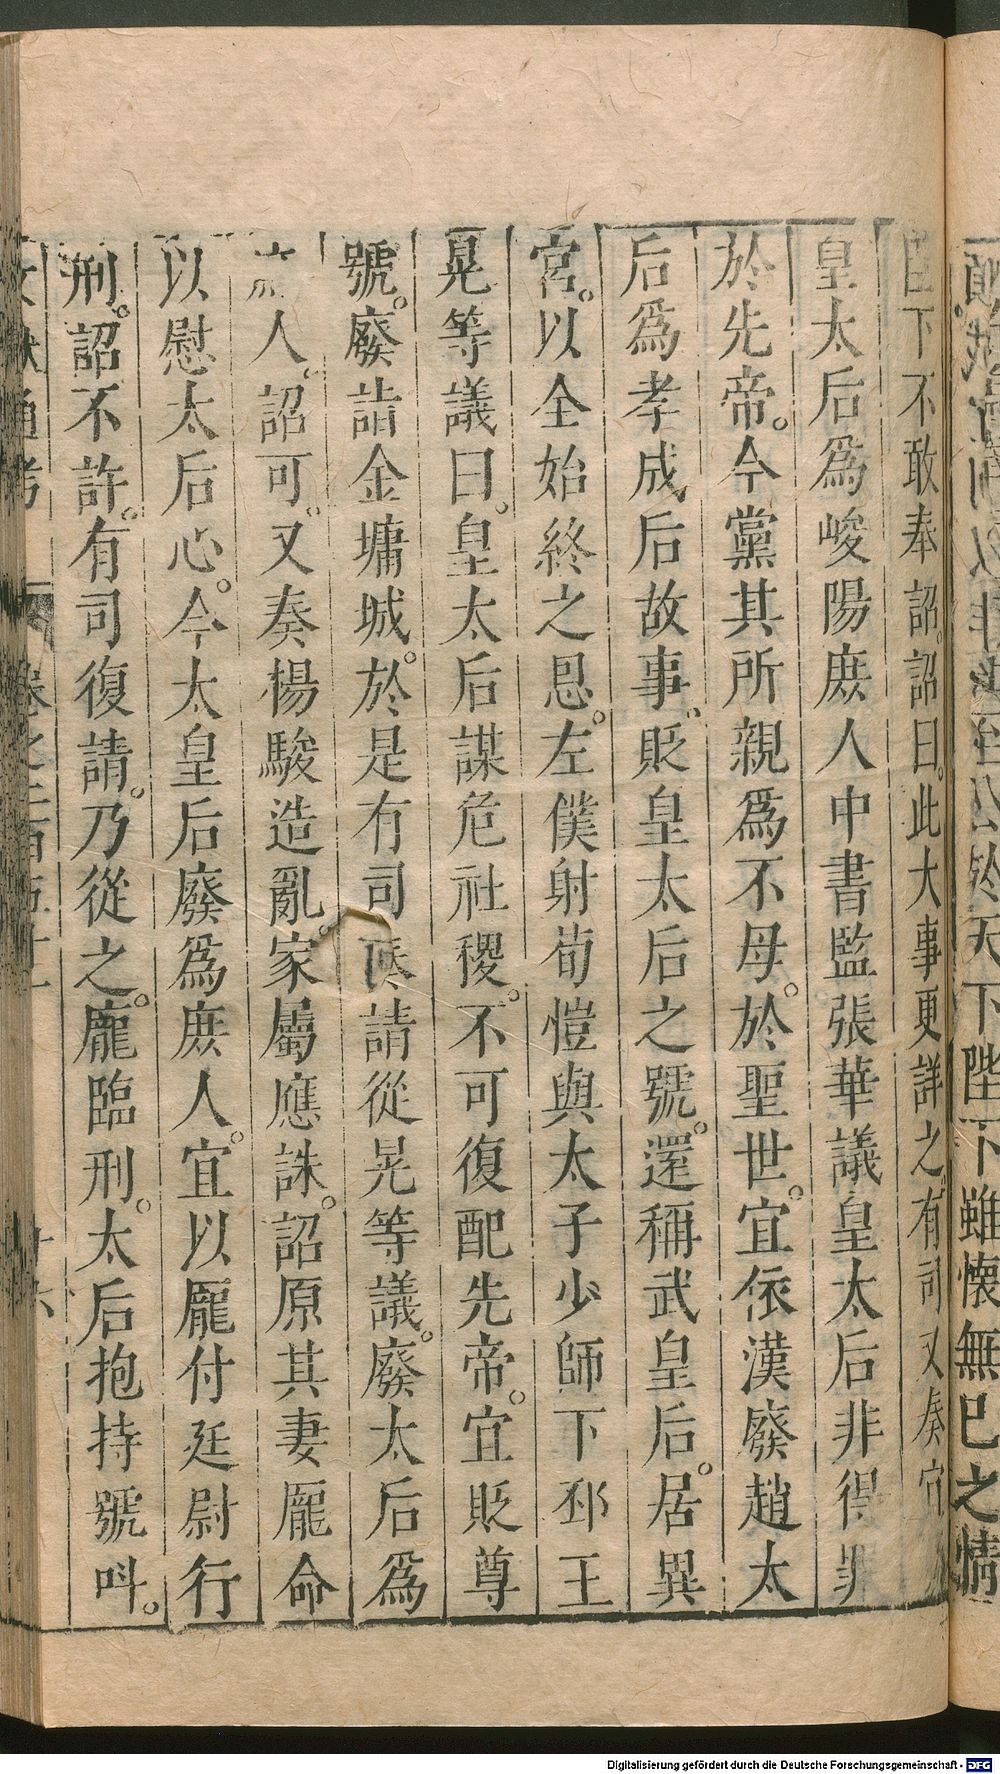 頭
天下陛下雖懷無已之情
臣下不敢奉詔詔曰此大事更詳之有司又奏宜
皇太后為峻陽庶人中書監張華議皇太后非得罪
於先帝。今黨其所親為不母。於聖世。宜依漢廢趙太
后為孝成后故事。貶皇太后之號。還稱武皇后。居異
宮。以全始終之恩。左僕射荀愷與太子少師下邳王
晃等議曰。皇太后謀危社稷。不可復配先帝。宜貶尊
號。廢詣金墉城。於是有司奏請從晃等議。廢太后為
庶人。詔可。又奏楊駿造亂。家屬應誅。詔原其妻龐命
以慰太后心。今太皇后廢為庶人。宜以龐付廷尉行
刑。詔不許。有司復請。乃從之。龐臨刑。太后抱持號叫。
文獻通考 卷之二百五十一 十六
Digitalisierung gefördert durch die Deutsche Forschungsgemeinschaft - DFG